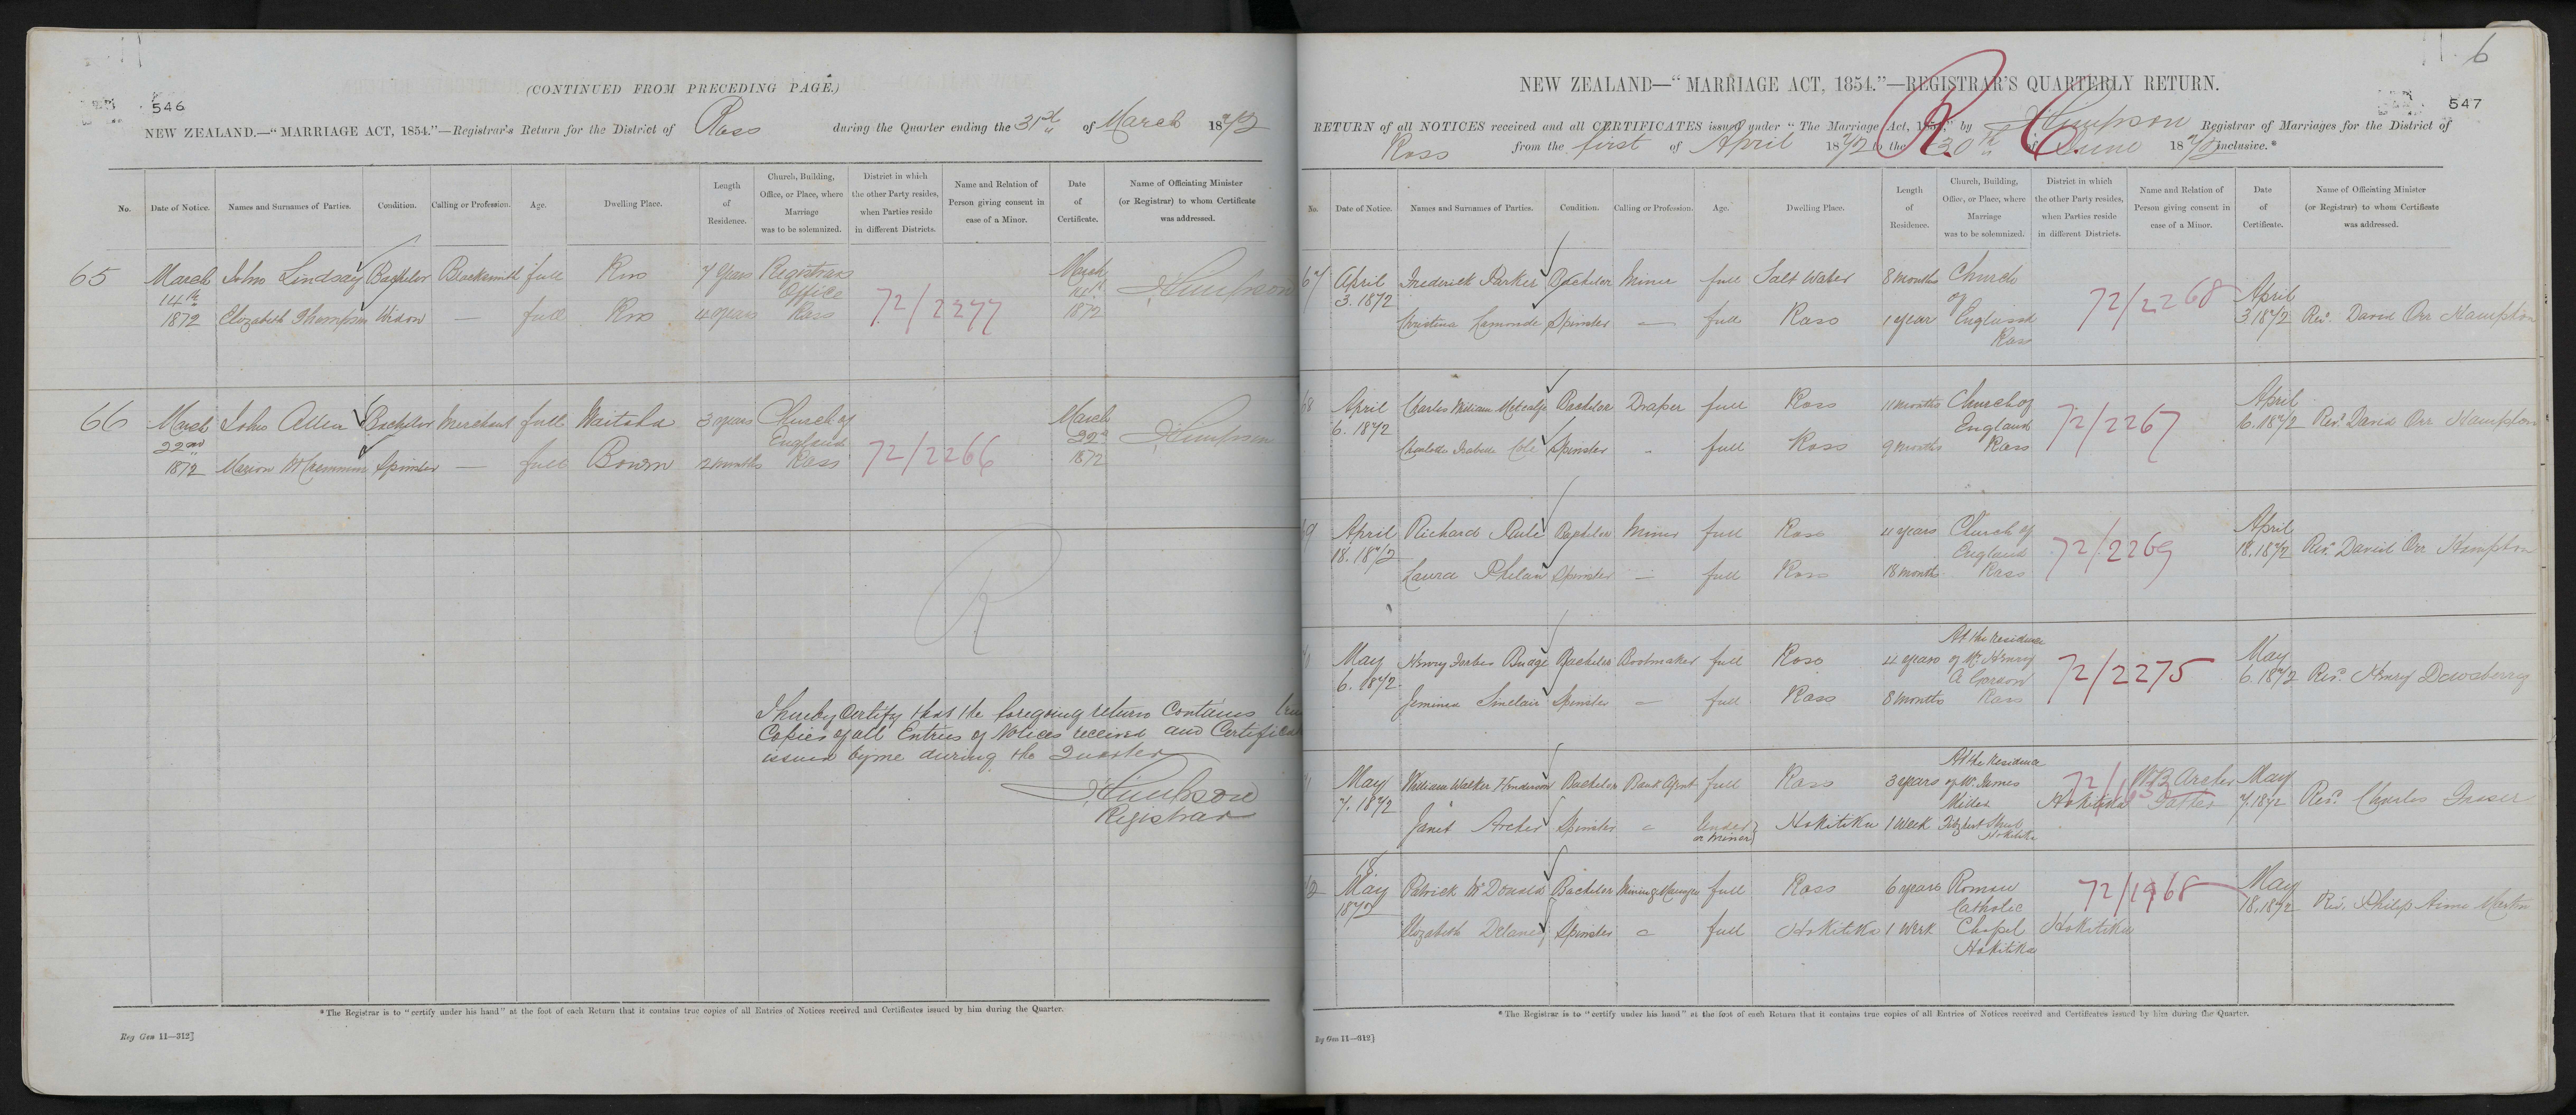 (CONTINUED FROM PRECEDING PAGE.)
546
NEW ZEALAND.—"MARRIAGE ACT, 1854."—Registrar's Return for the District of Ross during the Quarter ending the 31st of March 1872
No. Date of Notice. Names and Surnames of Parties. Condition. Calling or Profession. Age. Dwelling Place. Length of Residence. Church, Building, Office, or Place, where Marriage was to be solemnized. District in which the other Party resides, when Parties reside in different Districts. Name and Relation of Person giving consent in case of a Minor. Date of Certificate. Name of Officiating Minister (or Registrar) to whom Certificate was addressed.
65 March 14th 1872 John Lindsay Bachelor Blacksmith full Ross 7 years Registrars Office Ross 72/2277 March 14th 1872 Simpson
Elizabeth Thompson Widow — full Ross 4 years
66 March 22nd 1872 John Allen Bachelor Merchant full Waitaha 3 years Church of England Ross 72/2266 March 22d 1872 Simpson
Marion McCrimmon Spinster — full Bowen 2 months
R
I hereby Certify that the foregoing return contains
Copies of all Entries of Notices received and
issued by me during the Quarter
Simpson
Registrar
*The Registrar is to "certify under his hand" at the foot of each Return that it contains true copies of all Entries of Notices received and Certificates issued by him during the Quarter.
Reg Gen 11—312]
6
NEW ZEALAND—"MARRIAGE ACT, 1854."—REGISTRAR'S QUARTERLY RETURN.
547
RETURN of all NOTICES received and all CERTIFICATES issued under "The Marriage Act, 1854," by Simpson Registrar of Marriages for the District of
Ross from the first of April 1872 to the 30th of June 1872 inclusive.*
R. 6.
No. Date of Notice. Names and Surnames of Parties. Condition. Calling or Profession. Age. Dwelling Place. Length of Residence. Church, Building, Office, or Place, where Marriage was to be solemnized. District in which the other Party resides, when Parties reside in different Districts. Name and Relation of Person giving consent in case of a Minor. Date of Certificate. Name of Officiating Minister (or Registrar) to whom Certificate was addressed.
67 April 3. 1872 Frederick Parker Bachelor Miner full Salt Water 8 months Church of England Ross 72/2268 April 3 1872 Revd. David Orr Hampton
Christina Lamonde Spinster — full Ross 1 year
68 April 6. 1872 Charles William Metcalfe Bachelor Draper full Ross 11 months Church of England Ross 72/2267 April 6. 1872 Revd. David Orr Hampton
Charlotte Isabella Cole Spinster full Ross 9 months
April 18. 1872 Richard Bachelor Miner full Ross 4 years Church of England Ross 72/2269 April 18. 1872 Revd. David Orr Hampton
Laura Phelan Spinster — full Ross 18 month
May 6. 1872 Henry Forbes Budge Bachelor Bootmaker full Ross 4 years At the Residence of Mr Henry A Gordon Ross 72/2275 May 6. 1872 Revd. Henry Dewsberry
Jemima Sinclair Spinster — full Ross 8 months
May 7. 1872 William Walker Henderson Bachelor Bank Agent full Ross 3 years At the Residence of Mr. James Fitzherbert Street Hokitika Hokitika Archer Father May 7. 1872 Revd. Charles Fraser
Janet Archer Spinster Under or minor Hokitika 1 Week
18 May 1872 Patrick McDonald Bachelor Mining Manager full Ross 6 years Roman Catholic Chapel Hokitika 72/1968 May 18. 1872 Revd. Philip Aime Martin
Elizabeth Delaney Spinster full Hokitika 1 Week Hokitika
*The Registrar is to "certify under his hand" at the foot of each Return that it contains true copies of all Entries of Notices received and Certificates issued by him during the Quarter.
Reg Gen 11—312]